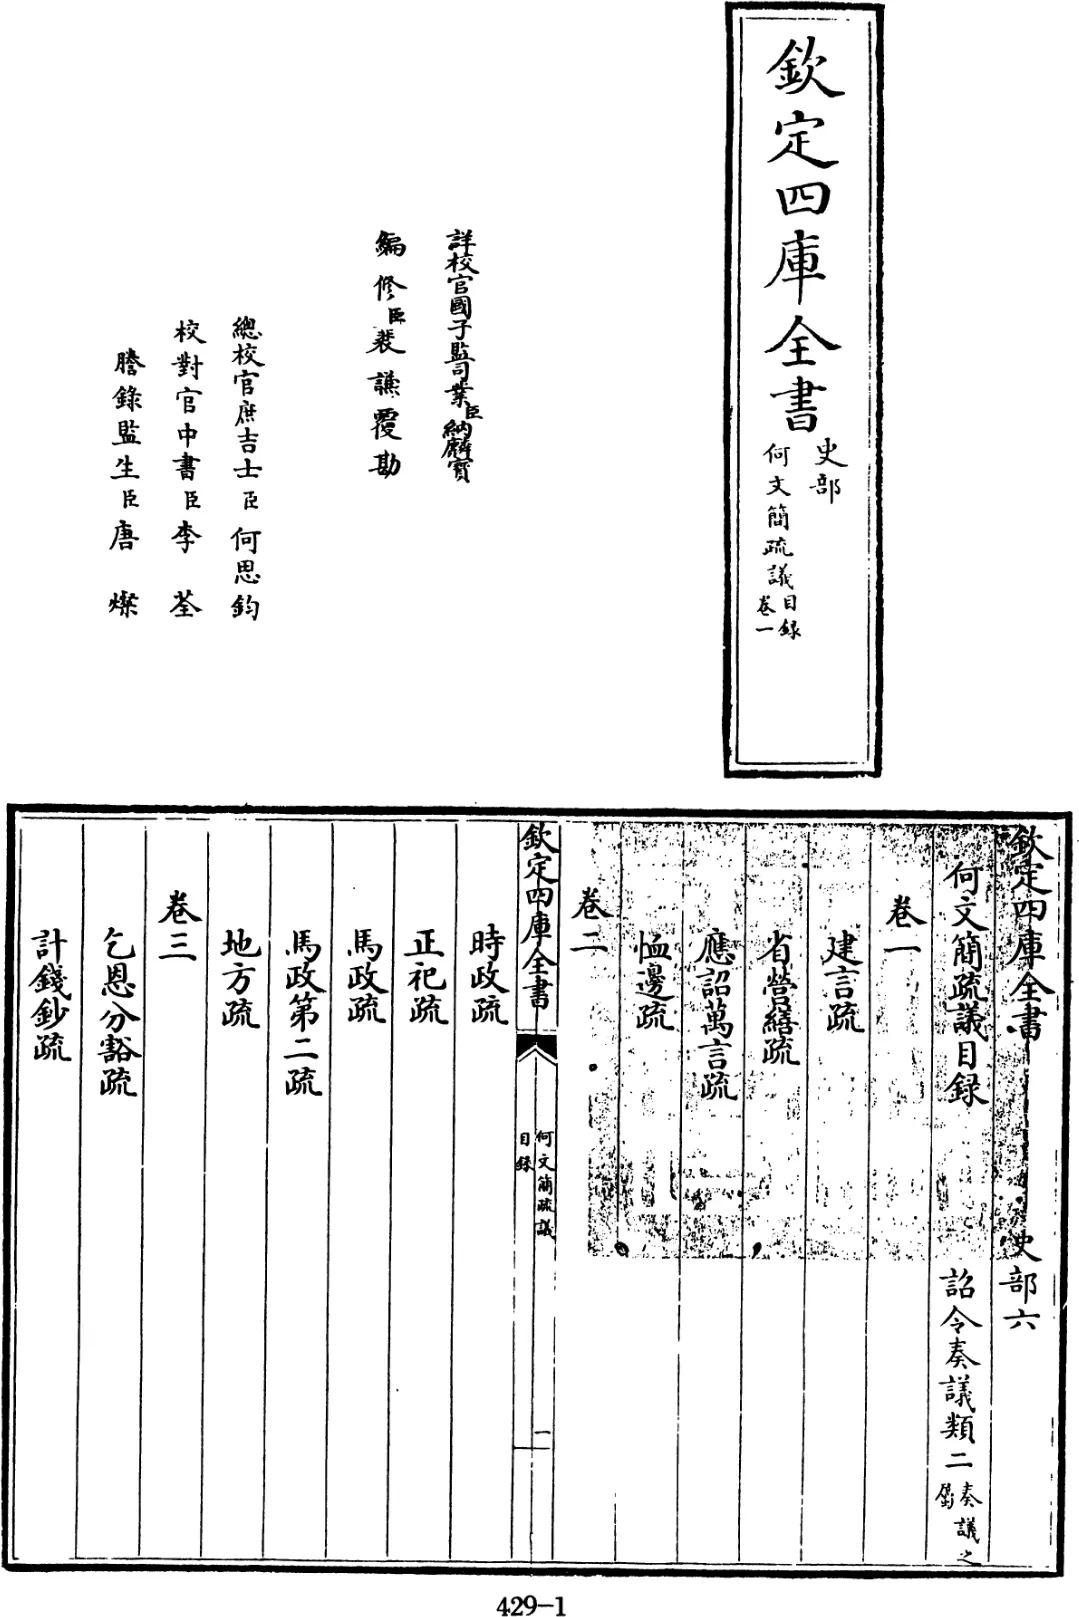 欽定四庫全書
史部
何文簡疏議目録
卷一
詳校官國子監司業臣納麟寶
編修臣裴謙覆勘
總校官庶吉士臣何思鈞
校對官中書臣李荃
謄錄監生臣唐燦
欽定四庫全書
史部六
何文簡疏議目録
詔令奏議類二
奏議之屬
卷一
建言疏
省營繕疏
應詔萬言疏
恤邊疏
卷二
欽定四庫全書
何文簡疏議
目録
一
時政疏
正祀疏
馬政疏
馬政第二疏
地方疏
卷三
乞恩分豁疏
計錢鈔疏
429-1